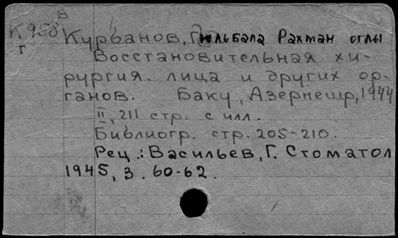 В
К 958
Г
Курбанов, Гильбала Рахман оглы
Восстановительная хи-
рургия лица и других ор-
ганов. Баку, Азернешр, 1944
II, 211 стр. с илл.
Библиогр. стр. 205-210.
Рец.: Васильев, Г. Стоматол
1945, 3. 60-62.